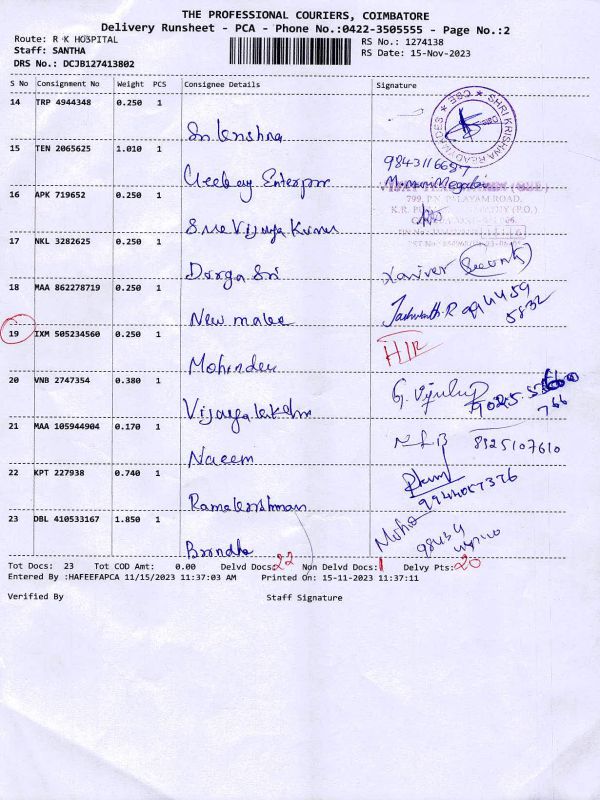 THE PROFESSIONAL COURIERS, COIMBATORE
Delivery Runsheet - PCA - Phone No.:0422-3505555 - Page No.:2
Route: R K HOSPITAL
RS No.: 1274138
Staff: SANTHA
RS Date: 15-Nov-2023
DRS No.: DCJB127413802
S No Consignment No Weight PCS Consignee Details Signature
14 TRP 4944348 0.250 1
Sri Krishna
SHRI KRISHNA READYMADES ★ CBE ★
15 TEN 2065625 1.010 1
Geebay Enterprise
9843116687
16 APK 719652 0.250 1
799, P.N. PALAYAM ROAD,
Sree Vijaya Kumar
17 NKL 3282625 0.250 1
Durga Sri
Xaviver
18 MAA 862278719 0.250 1
New male
Jashwanth.R 994459
5832
19 IXM 505234560 0.250 1
Mohinder
20 VNB 2747354 0.380 1
Vijayalakshmi
766
21 MAA 105944904 0.170 1
Naeem
8925107610
22 KPT 227938 0.740 1
Ramakrishnan
9944057376
23 DBL 410533167 1.850 1
Brindha
Tot Docs: 23 Tot COD Amt: 0.00 Delvd Docs:22 Non Delvd Docs:1 Delvy Pts:20
Entered By :HAFEEFAPCA 11/15/2023 11:37:03 AM Printed On: 15-11-2023 11:37:11
Verified By Staff Signature